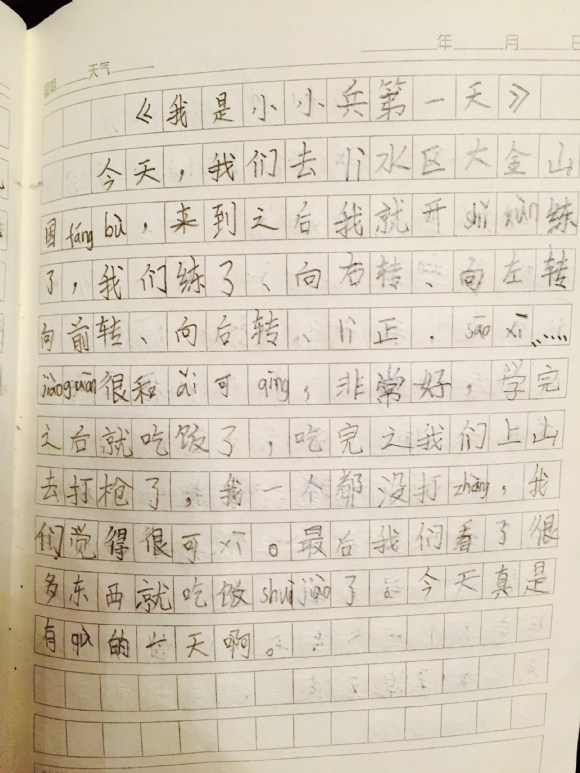 年 月 日
天气
《我是小小兵第一天》
今天，我们去lì水区大金山
国fáng bù，来到之后我就开shǐ xùn练
了，我们练了、向右转、向左转
向前转、向后转、lì正，sāo xī……
jiàoguān很和ǎi可qīng，非常好，学完
之后就吃饭了，吃完之我们上山
去打枪了，我一个都没打zhòng，我
们觉得很可xī。最后我们看了很
多东西就吃饭shuì jiào了。今天真是
有qù的一天啊。